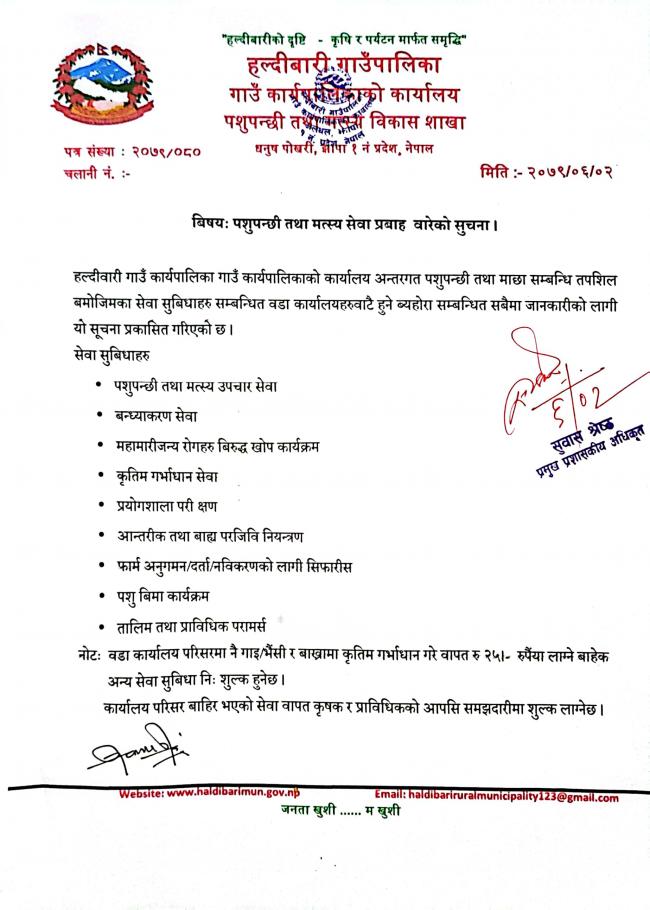 "हल्दीबारीको दृष्टि - कृषि र पर्यटन मार्फत समृद्धि"
हल्दीबारी गाउँपालिका
गाउँ कार्यपालिकाको कार्यालय
पशुपन्छी तथा मत्स्य विकास शाखा
धनुष पोखरी, झापा १ नं प्रदेश, नेपाल
पत्र संख्या : २०७९/०८०
चलानी नं. :-
मिति :- २०७९/०६/०२
बिषयः पशुपन्छी तथा मत्स्य सेवा प्रबाह वारेको सुचना।
हल्दीवारी गाउँ कार्यपालिका गाउँ कार्यपालिकाको कार्यालय अन्तरगत पशुपन्छी तथा माछा सम्बन्धि तपशिल
बमोजिमका सेवा सुबिधाहरु सम्बन्धित वडा कार्यालयहरुवाटै हुने ब्यहोरा सम्बन्धित सबैमा जानकारीको लागी
यो सूचना प्रकासित गरिएको छ।
सेवा सुबिधाहरु
• पशुपन्छी तथा मत्स्य उपचार सेवा
• बन्ध्याकरण सेवा
• महामारीजन्य रोगहरु बिरुद्ध खोप कार्यक्रम
• कृतिम गर्भाधान सेवा
• प्रयोगशाला परी क्षण
• आन्तरीक तथा बाह्य परजिवि नियन्त्रण
• फार्म अनुगमन/दर्ता/नविकरणको लागी सिफारीस
• पशु बिमा कार्यक्रम
• तालिम तथा प्राविधिक परामर्स
६/०२
सुवास श्रेष्ठ
प्रमुख प्रशासकीय अधिकृत
नोटः वडा कार्यालय परिसरमा नै गाइ/भैंसी र बाख्रामा कृतिम गर्भाधान गरे वापत रु २५।- रुपैंया लाग्ने बाहेक
अन्य सेवा सुबिधा निः शुल्क हुनेछ।
कार्यालय परिसर बाहिर भएको सेवा वापत कृषक र प्राविधिकको आपसि समझदारीमा शुल्क लाग्नेछ।
Website: www.haldibarimun.gov.np
Email: haldibariruralmunicipality123@gmail.com
जनता खुशी ...... म खुशी